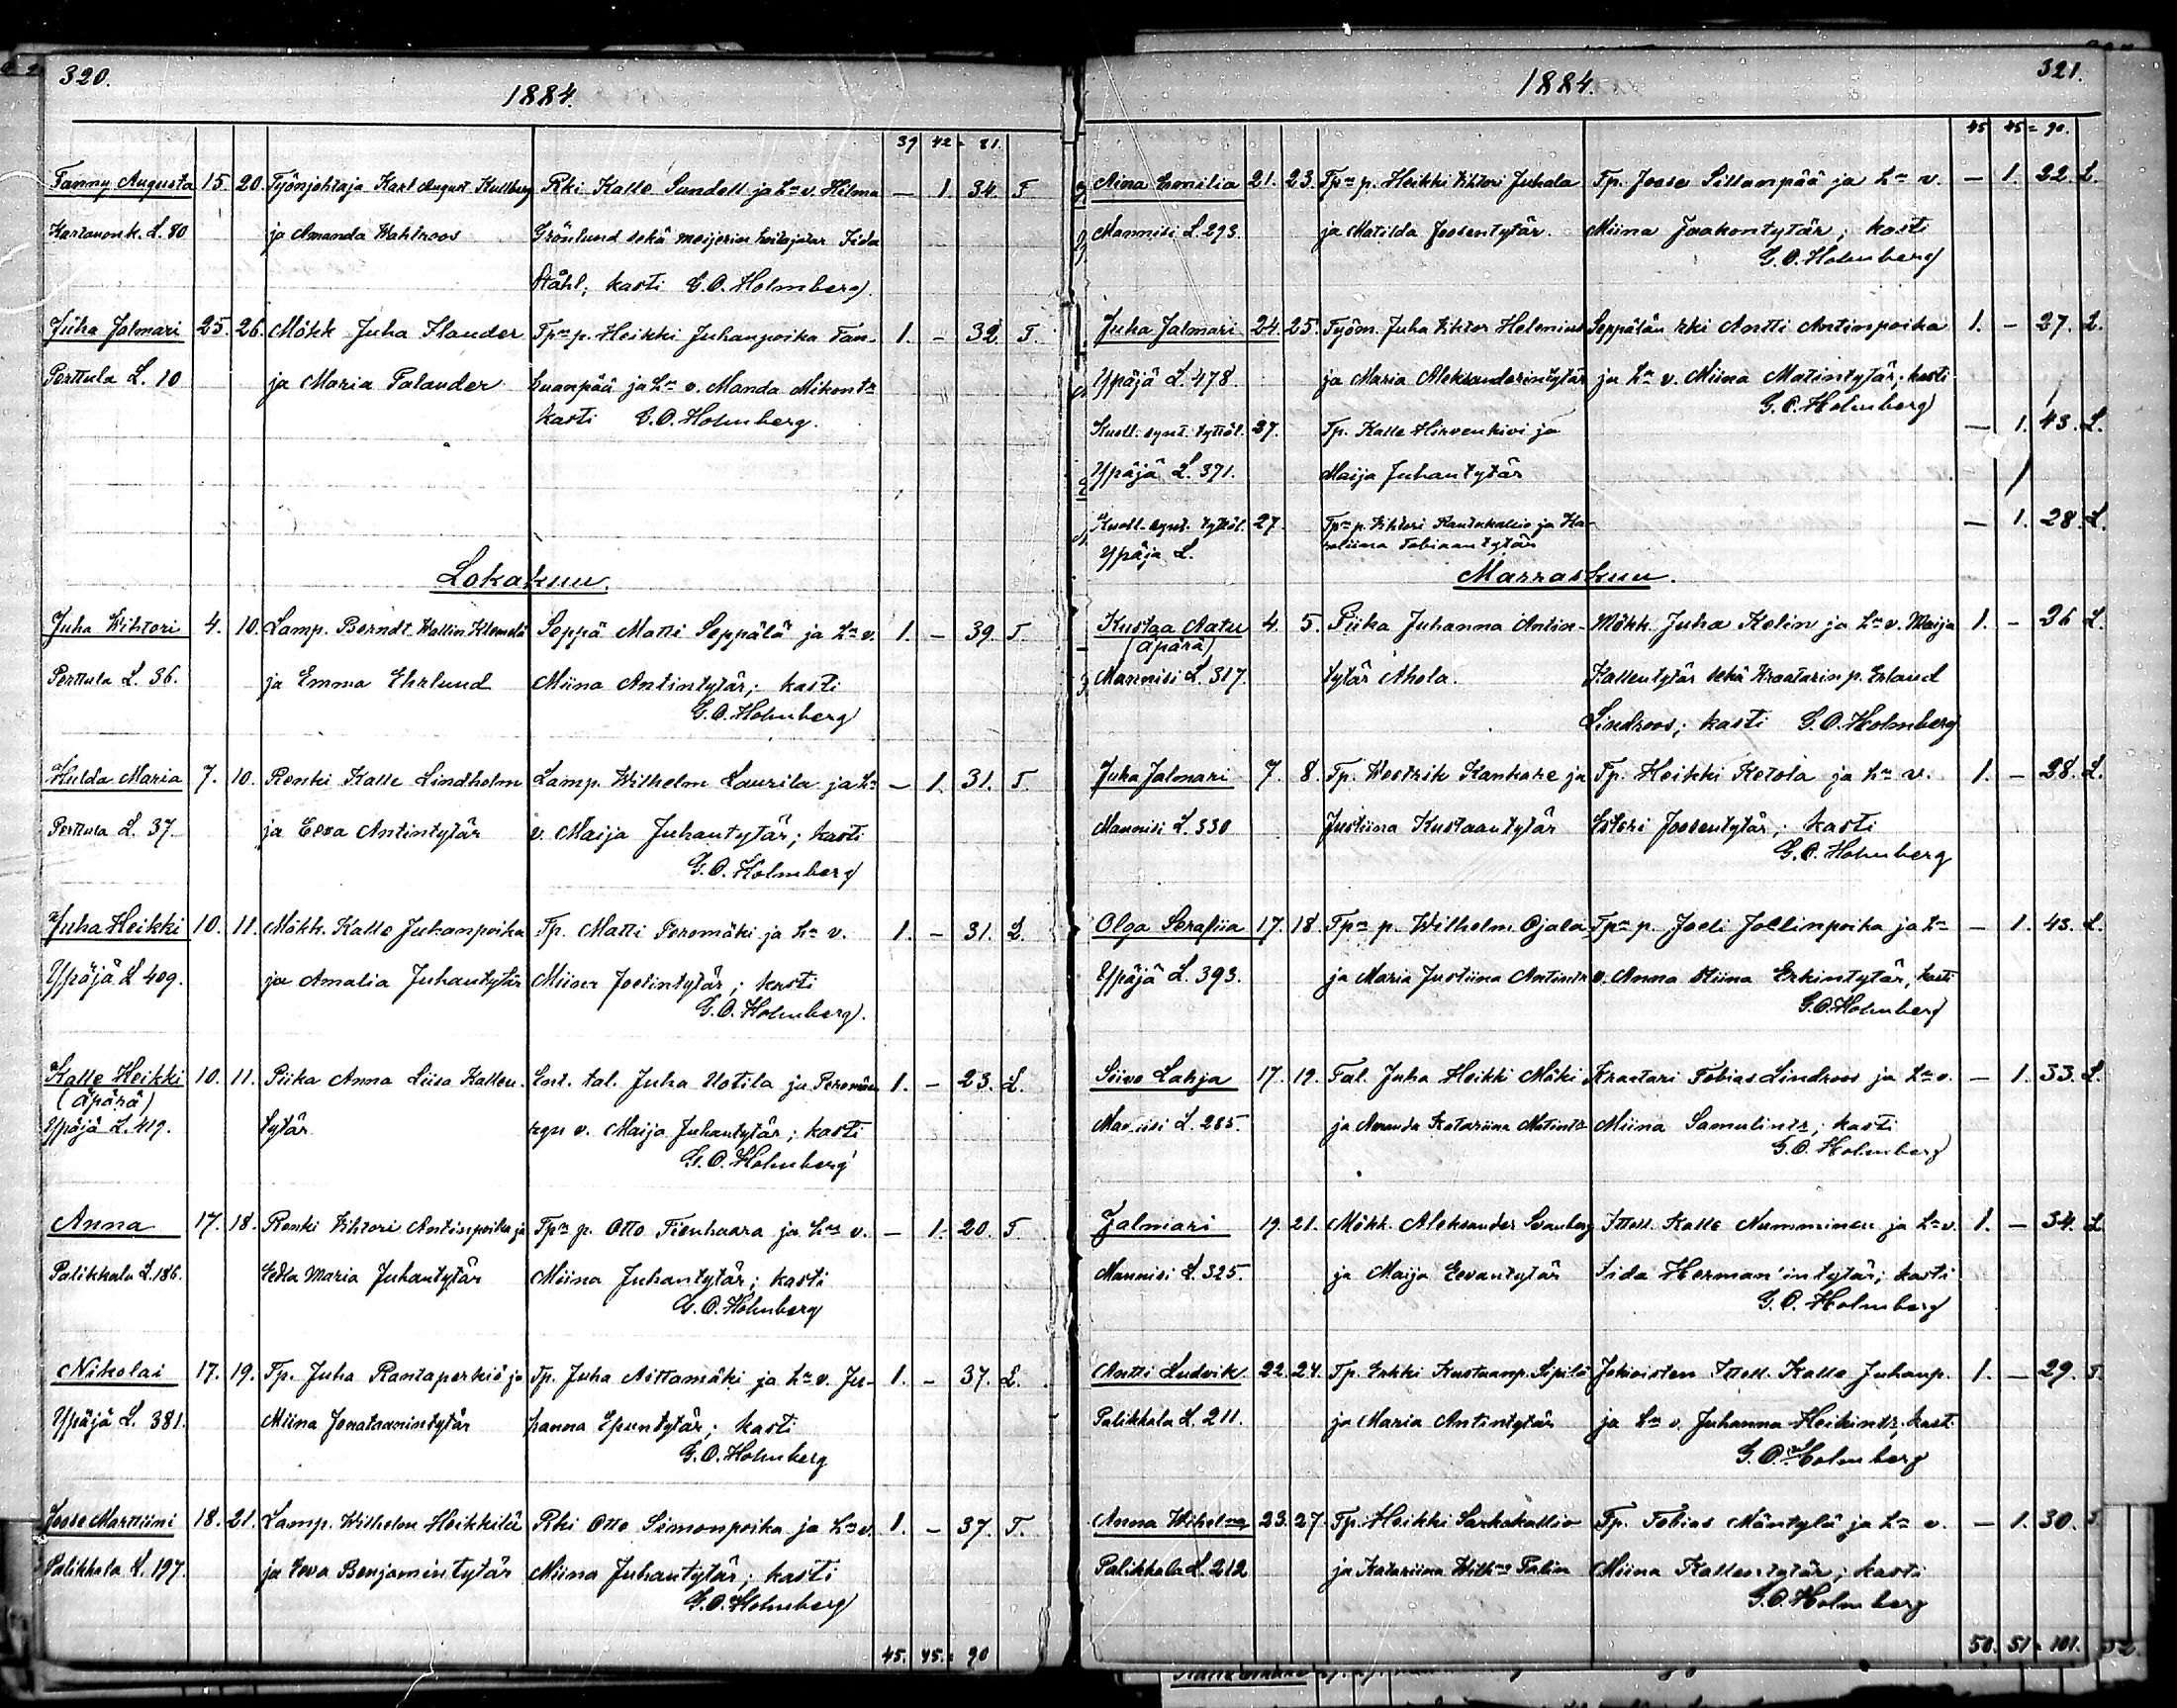 320.
1884.
39 42 = 81.
Fanny Augusta 15. 20. Työnjohtaja Karl August Kullberg Rki Kalle Sundell ja h:n v. Hilma — 1. 34. T.
Kartanonk. L. 80 ja Amanda Wahlroos Grönlund sekä meijerin Iida
Ståhl; kasti G.O. Holmberg.
Juha Jalmari 25. 26. Mökk Juha Flander Tp:n p. Heikki Juhanpoika Tan- 1. — 32 T.
Perttula L. 10 ja Maria Palander huanpää ja h:n v. Manda Mikont:r
kasti G.O. Holmberg.
Lokakuu.
Juha Wihtori 4. 10. Lamp. Berndt Wallin Klemelä Seppä Matti Seppälä ja h:n v. 1. — 39. T.
Perttula L. 36. ja Emma Ehrlund Miina Antintytär; kasti
G.O. Holmberg
Hulda Maria 7. 10. Renki Kalle Lindholm Lamp. Wilhelm Laurila ja h:n — 1. 31. T.
Perttula L. 37. ja Eeva Antintytär v. Maija Juhantytär; kasti
G.O. Holmberg
Juha Heikki 10. 11. Mökk. Kalle Juhanpoika Tp. Matti Peromäki ja h:n v. 1. — 31. L.
Ypäjä L 409. ja Amalia Juhantytär Miina Joelintytär; kasti
G.O. Holmberg.
Kalle Heikki 10. 11. Piika Anna Liisa Kallen- Ent. tal. Juha Uotila ja Peromäen 1. — 23. L.
(äpärä)
Ypäjä L. 419. tytär v. Maija Juhantytär; kasti
G.O. Holmberg
Anna 17. 18. Renki Vihtori Antinpoika ja Tp:n p. Otto Tienhaara ja h:n v. — 1. 20. T
Palikkala L. 186. Edla Maria Juhantytär Miina Juhantytär; kasti
G.O. Holmberg
Nikolai 17. 19. Tp. Juha Rantaperkiö ja Tp. Juha Aittamäki ja h:n v. Ju- 1. — 37. L.
Ypäjä L. 381. Miina Jonataanintytär hanna Epuntytär; kasti
G.O. Holmberg
Joose Marttiini 18. 21. Lamp. Wilhelm Heikkilä Rki Otto Simonpoika ja h:n v. 1. — 37. T.
Palikkala L. 197. ja Eeva Benjamintytär Miina Juhantytär; kasti
G.O. Holmberg
45. 45. = 90
321.
1884.
45 45 = 90.
Aina Emilia 21. 23. Tp:n p. Heikki Vihtori Juhala Tp. Joose Sillanpää ja h:n v. — 1. 22. L.
Mannisi L. 293. ja Matilda Joosentytär. Miina Jaakontytär; kasti
G.O. Holmberg
Juha Jalmari 24. 25. Työm. Juha Viktor Helenius Seppälän rki Antti Antinpoika 1. — 27. L.
Ypäjä L. 478. ja Maria Aleksanderintytär ja h:n v. Miina Matintytär; kasti
G.O. Holmberg
Kuoll. synt. tyttöl. 27. Tp. Kalle Hirvenkivi ja — 1. 43. L.
Ypäjä L. 371. Maija Juhantytär
Kuoll. synt. tyttöl. 27. Tp:n p. Vihtori Rantakallio ja Ka- — 1. 28. L.
Ypäjä L. roliina Tobiaantytär
Marraskuu.
Kustaa Aatu 4. 5. Piika Juhanna Antin- Mökk. Juha Kelin ja h:n v. Maija 1. — 26 L.
(äpärä)
Mannisi L. 317. tytär Ahola. Kallentytär sekä Kraatarin p. Erland
Lindroos; kasti G.O. Holmberg
Juha Jalmari 7. 8. Tp. Westrik Kankare ja Tp. Heikki Ketola ja h:n v. 1. — 28. L.
Mannisi L. 330 Justiina Kustaantytär Esteri Joosentytär; kasti
G.O. Holmberg
Olga Serafiia 17. 18. Tp:n p. Wilhelm Ojala Tp:n p. Joeli Jollinpoika ja h:n — 1. 43. L.
Ypäjä L. 393. ja Maria Justiina Antintr v. Anna Stiina Erkintytär, kasti
G.O. Holmberg
Siivo Lahja 17. 19. Tal. Juha Heikki Mäki Kraatari Tobias Lindroos ja h:n v. — 1. 33. L.
Mannisi L. 285. ja Amanda Katariina Matintr Miina Samulintr; kasti
G.O. Holmberg
Jalmari 19. 21. Mökk. Aleksander Svanberg Itsell. Kalle Numminen ja h:n v. 1. — 34. L
Mannisi L. 325. ja Maija Eevantytär Iida Herman'intytär; kasti
G.O. Holmberg
Antti Ludvik 22. 24. Tp. Erkki Kustaanp. Sipilä Jokioisten Itsell. Kalle Juhanp. 1. — 29. T.
Palikkala L. 211. ja Maria Antintytär ja h:n v. Juhanna Heikintr, kasti
G.O. Holmberg
Anna Wilhelma 23. 27. Tp. Heikki Sarkakallio Tp. Tobias Mäntylä ja h:n v. — 1. 30. T
Palikkala L. 212 ja Katariina Miina Kallentytär; kasti
G.O. Holmberg
50. 51 = 101.